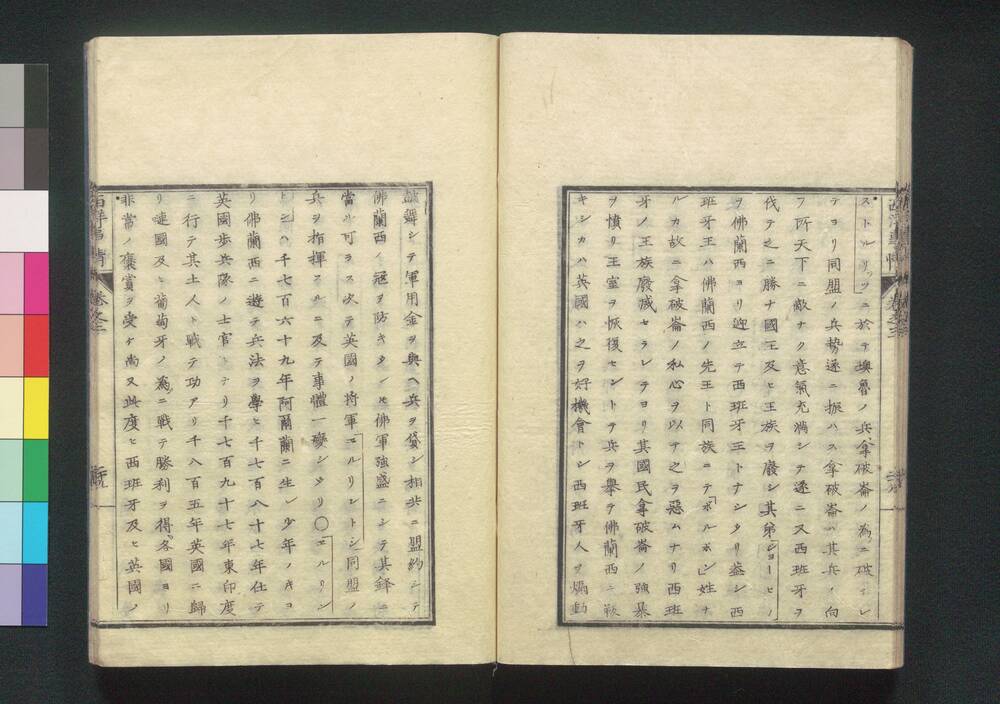 ストルリッツニ於テ墺魯ノ兵拿破崙ノ為ニ破ラレ
テヨリ同盟ノ兵勢遂ニ振ハス拿破崙ハ其兵ノ向
フ所天下ニ敵ナク意氣充滿シテ遂ニ又西班牙ヲ
伐テ之ニ勝ナ國王及ヒ王族ヲ廢シ其弟ジヨーヒノ
ヲ佛蘭西ヨリ迎立テ西班牙王トナシタリ蓋シ西
班牙王ハ佛蘭西ノ先王ト同族ニテ「ボルボン」姓ナ
ルカ故ニ拿破崙ノ私心ヲ以テ之ヲ惡ムナリ西班
牙ノ王族廢滅セラレテヨリ其國民拿破崙ノ強暴
ヲ憤リ王室ヲ恢復セントテ兵ヲ舉テ佛蘭西ニ敵
キシカハ英國ハ之ヲ好機會トシ西班牙人ヲ煽動
皷舞シテ軍用金ヲ與ヘ兵ヲ貸シ相共ニ盟約シテ
佛蘭西ノ冦ヲ防キタレ𪜈佛軍強盛ニシテ其鋒ニ
當ル可ラス次テ英國ノ將軍ヱルリントン同盟ノ
兵ヲ指揮スルニ及テ事體一變シタリ〇「ヱルリン
トン」ハ千七百六十九年阿爾蘭ニ生レ少年ノキヨ
リ佛蘭西ニ遊テ兵法ヲ學ヒ千七百八十七年仕テ
英國歩兵隊ノ士官トナリ千七百九十七年東印度
ニ行テ其土人ト戰テ功アリ千八百五年英國ニ歸
リ嗹國及ヒ葡萄牙ノ為ニ戰テ勝利ヲ得各國ヨリ
非常ノ褒賞ヲ受ケ尚又此度ヒ西班牙及ヒ英國ノ
西洋事情 卷之三